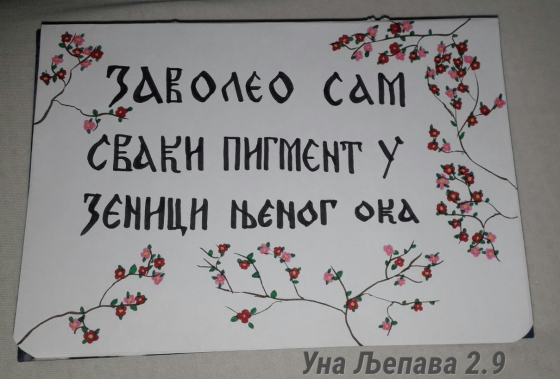 ЗАВОЛЕО САМ
СВАКИ ПИГМЕНТ У
ЗЕНИЦИ ЊЕНОГ ОКА
Уна Љепава 2.9